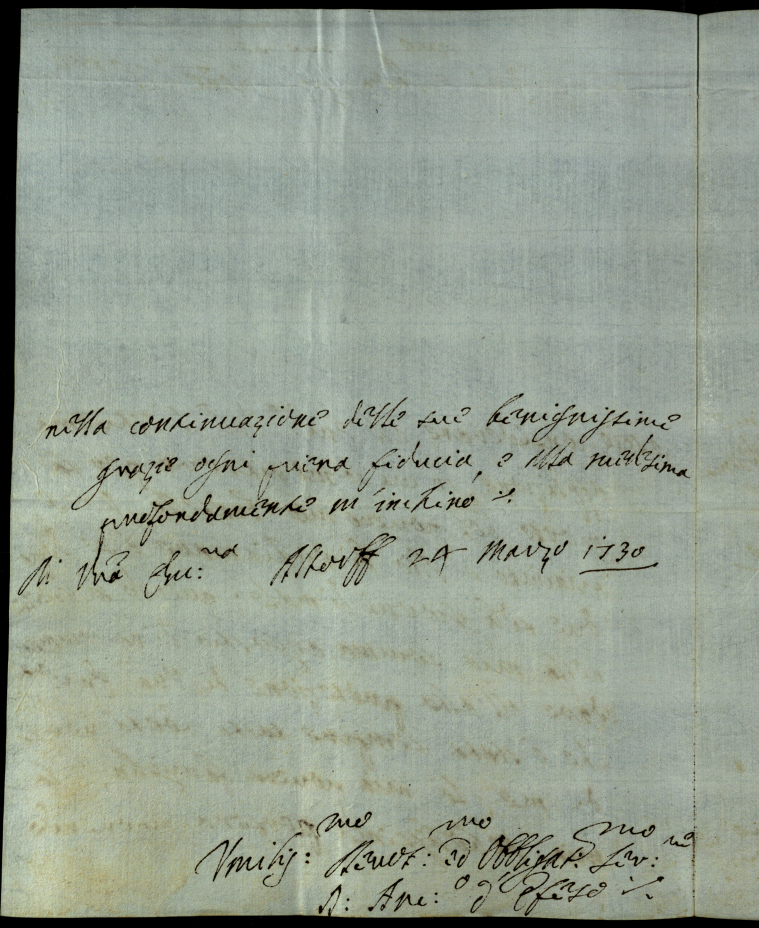 nella continuazione delle sue benignissime
grazie ogni piena fiducia, e alla medesima
profondamente m'inchino
Di Vrã Em:na Altorff 24 Marzo 1730
Umilis:mo Devot:mo ed Obbligat:mo Ser:re
D: Arc:o d'Efeso